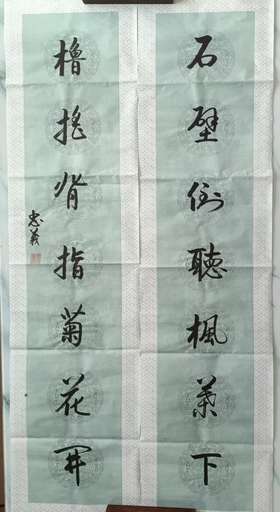 石壁倒聽楓葉下
櫓搖背指菊花開
忠義